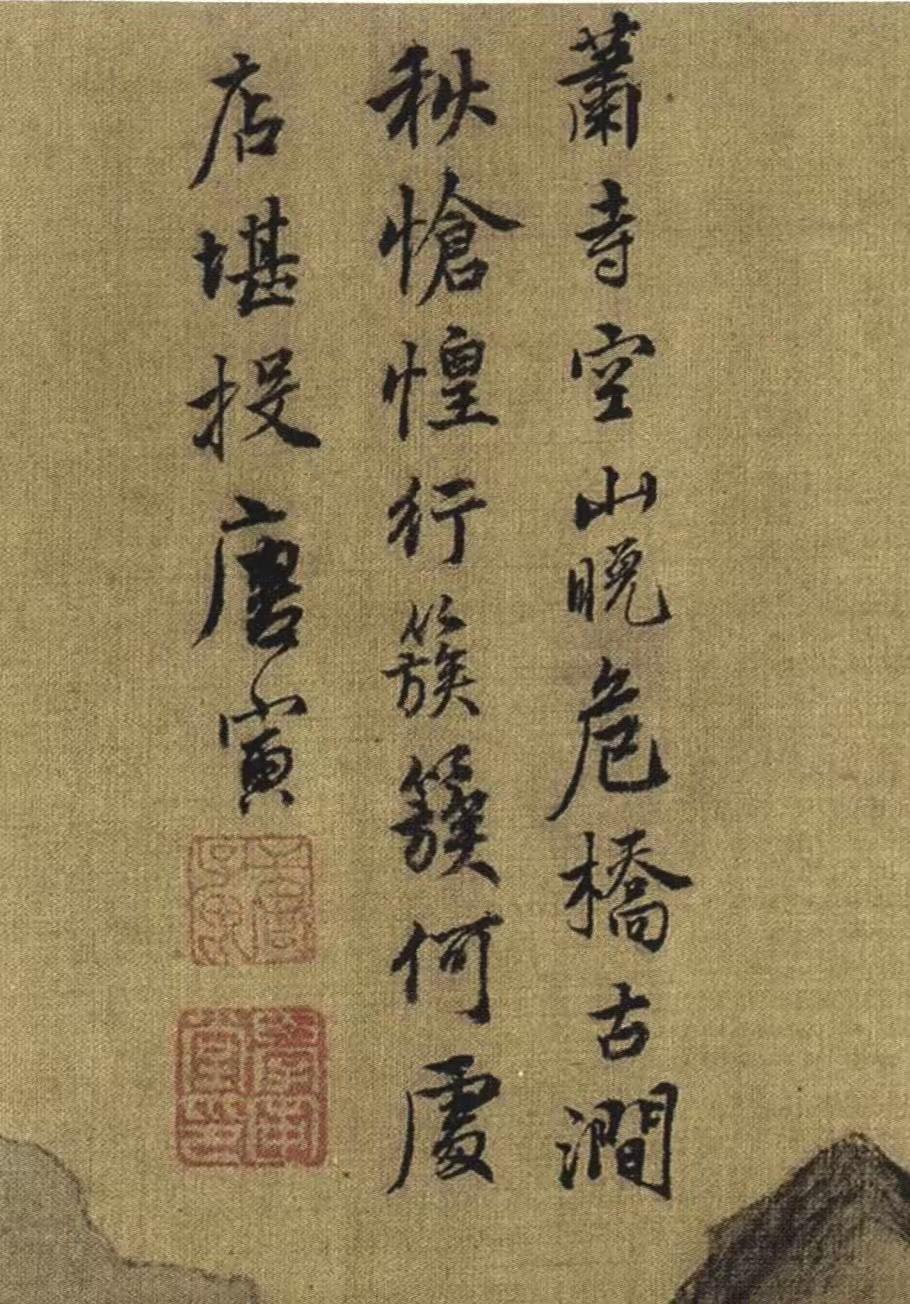 蕭寺空山晚危橋古澗
秋愴惶行簇簇何處
店堪投唐寅